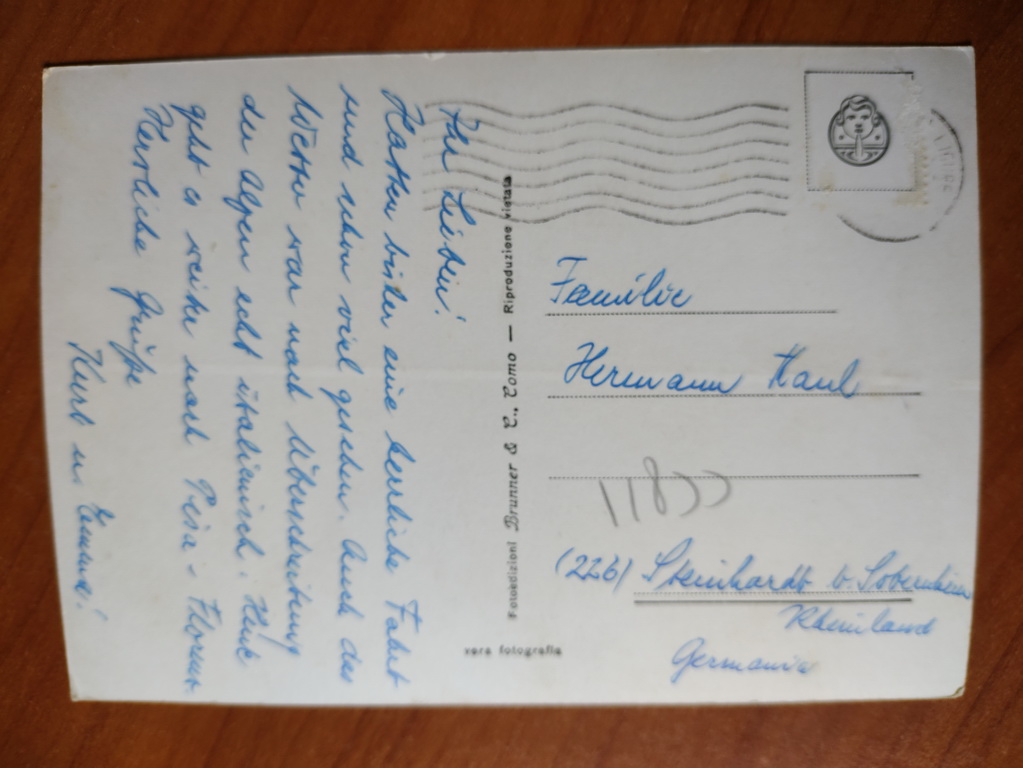 Ihr Lieben!
Hatten bisher eine herrliche Fahrt
und schon viel gesehen. Auch das
Wetter war nach Überschreitung
der Alpen echt italienisch. Heute
geht es weiter nach Pisa - Florenz.
Herzliche Grüße
Kurt u. Emma!
Fotoedizioni Brunner & C., Como — Riproduzione vietata
vera fotografia
Familie
Hermann Haul
11833
(22b) Steinhardt b. Sobernheim
Rheinland
Germania